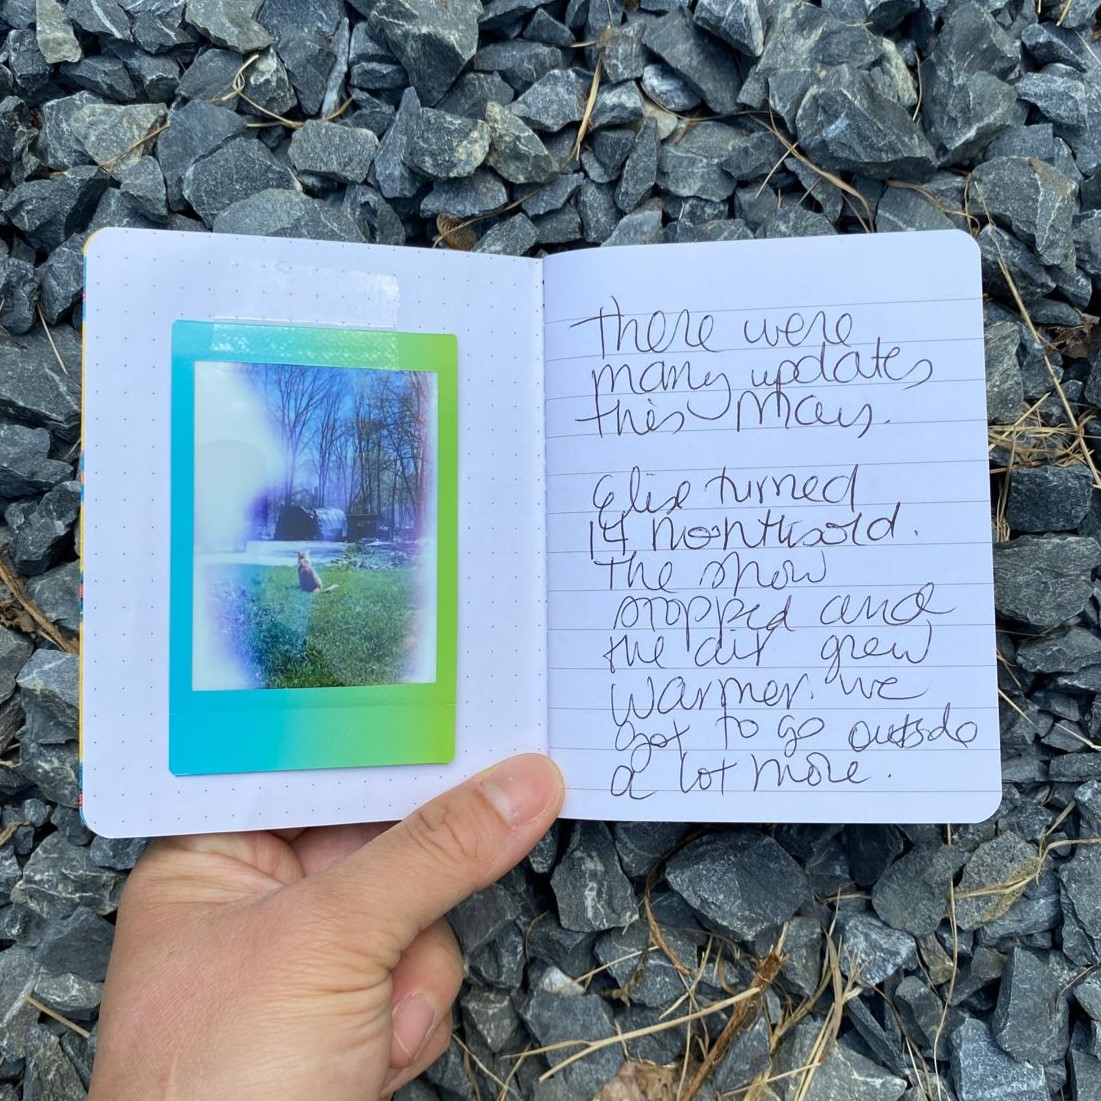 There were
many updates
this May.
Elix turned
14 months old.
The snow
stopped and
the air grew
warmer. We
got to go outside
a lot more.